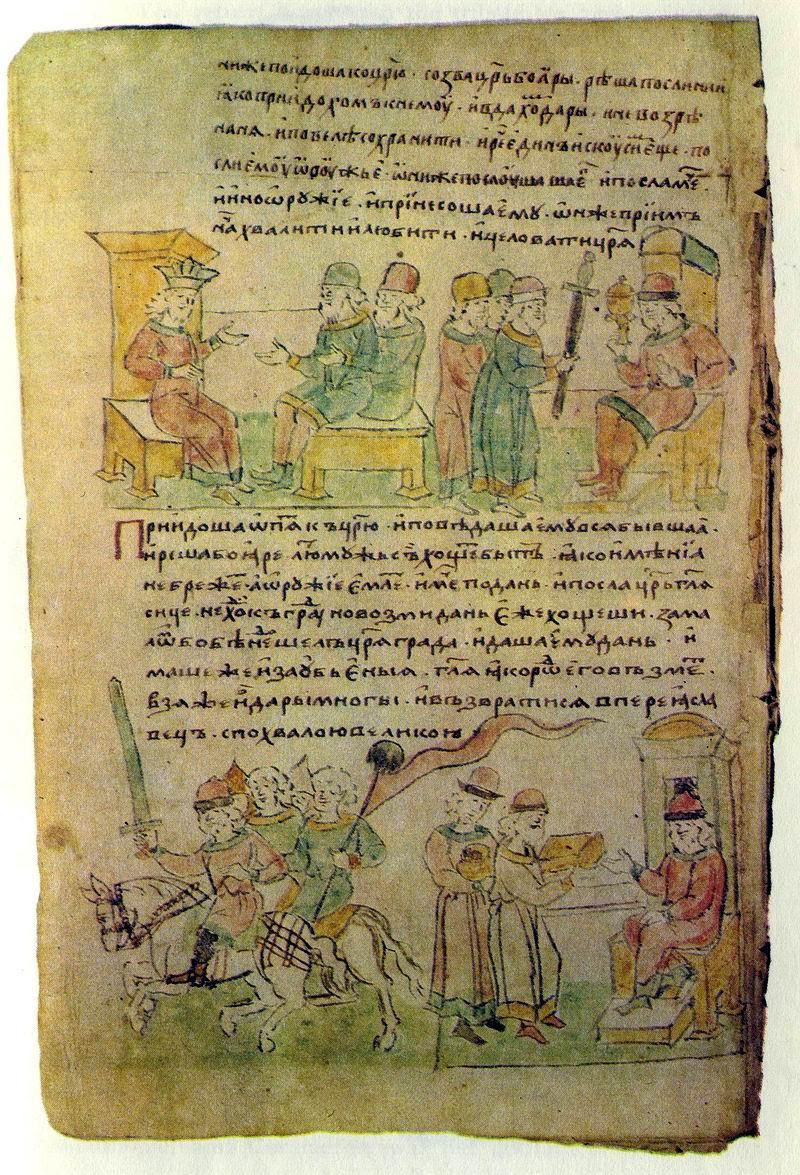 ниже поидоша ко црю · созва црь боꙗры · рѣша послании
ꙗко приидохомъ к немоу · и вдахо дары · и не возрѣ
на нѧ · и повелѣ сохранити · и рече единъ искоуси еще · по
сли емоу ѡроужье · ѡни же послоушаша е · и посламе ·
и ино ѡружїе · и прїнесоша ему · ѡн же прїимъ
нача хвалити и любити · и целовати црѧ
Приидоша ѡпѧ къ црю · и повѣдаша ему всѧ бывшаꙗ ·
и рѣша боꙗре лю мужь съ хоще быть · ꙗко имѣнїа
небреже · а ѡружїе емле · име по дань · и посла црь глѧ
сице · не хо къ гра но возми дань еже хощеши · за мла
ѡ бо бѣ не шелъ црѧграда · и даша ему дань · и
маше же и за убьеныꙗ · глѧ ꙗко ро его възме ·
взѧ же и дары многы · и възвратисѧ в переꙗсла
вець · с похвалою великою